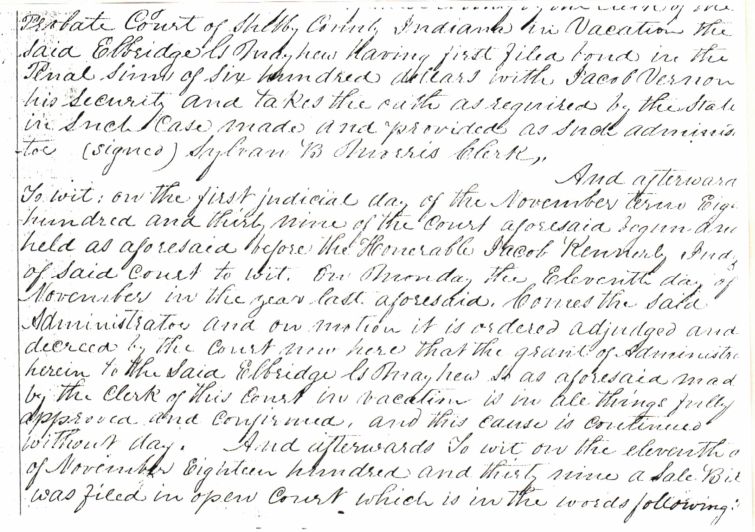 Probate Court of Shelby County Indiana in Vacation the
said Elbridge G Mayhew having first filed bond in the
Penal Sum of six hundred dollars with Jacob Vernon
his security and takes the oath as required by the State
in Such Case made and provided as Such adminis
tor (signed) Sylvan B Morris Clerk,,
And afterward
To wit: on the first judicial day of the November term Eigh
hundred and thirty nine of the Court aforesaid begun and
held as aforesaid before the Honerable Jacob Kennerly Judg
of said Court to wit. On Monday the Eleventh day of
November in the year last aforesaid. Comes the said
Administrator and on motion it is ordered adjudged and
decreed by the Court now here that the grant of Administra
herein to the Said Elbridge G Mayhew So as aforesaid mad
by the Clerk of this Court in vacation is in all things fully
approved and confirmed, and this cause is continued
without day. And afterwards To wit on the eleventh
of November Eighteen hundred and thirty nine a Sale Bil
was filed in open Court which is in the words following: